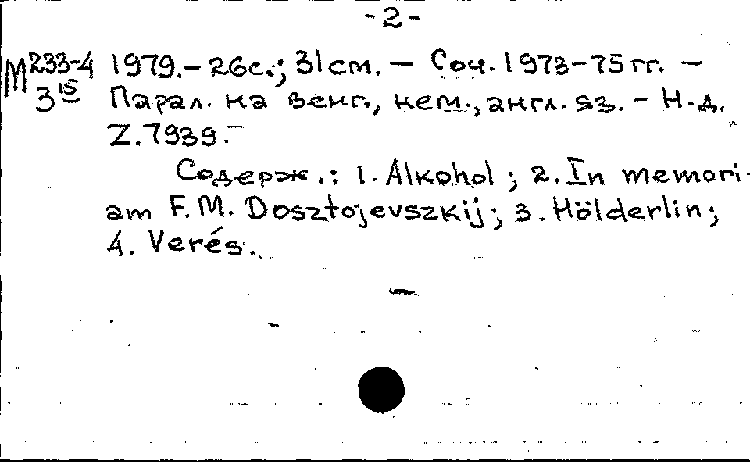 -2-
М 233-4 1979.- 26с.; 31см. – Соч. 1973-75 гг. –
3 15 Парал. на венг., нем., англ. яз. - Н.д.
Z.7939.-
Содерж.: 1. Alkohol ; 2. In memori-
am F.M. Dosztojevszkij ; 3. Hölderlin ;
4. Verés.